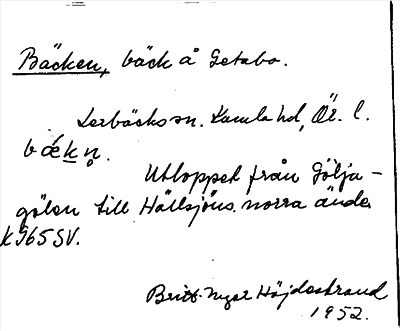 Bäcken, bäck å Getabo.
Lerbäcks sn. Kumla hd, Ör. l.
bǽkn̥.
Utloppet från Gölja-
gölen till Hällsjöns norra ände
K965SV.
Britt-Inger Höjdestrand
1952.